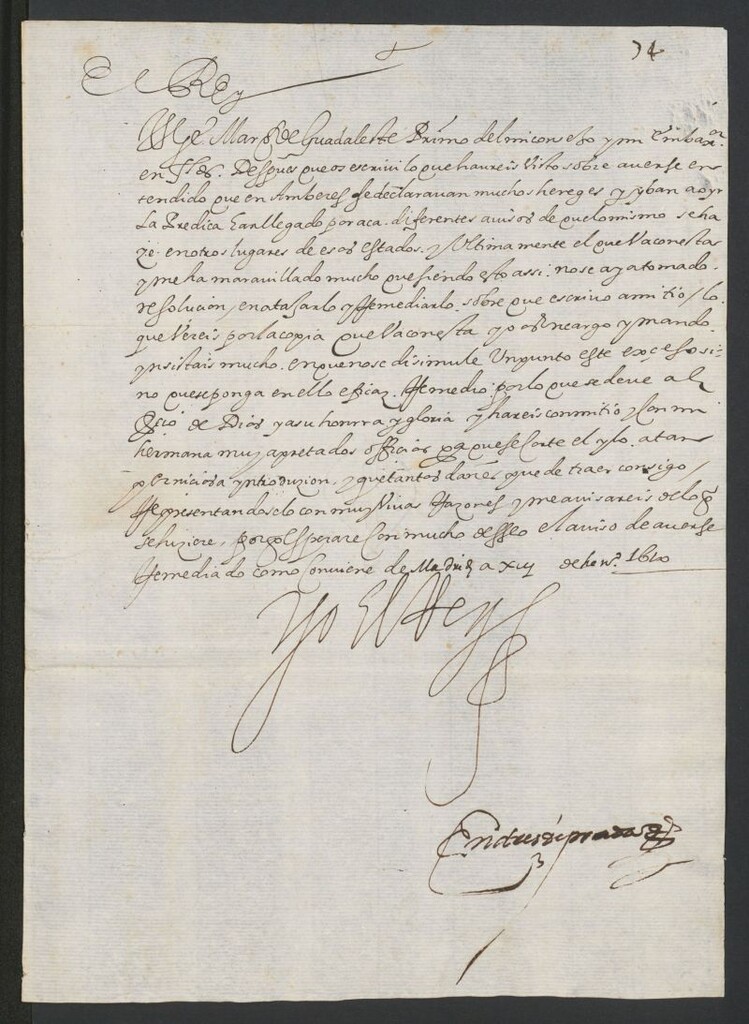 34
El Rey
Ill.e Marq.s de Guadaleste Primo del mi consejo y mi Embax.or
en Fl.des. Despues que os escrivi lo que havreis visto sobre averse en
tendido que en Amberes se declaravan muchos hereges y yban a oyr
La Predica han llegado por aca diferentes avisos de que lo mismo se ha
ze en otros lugares de esos estados. y Ultimamente el que va con esta
y me ha maravillado mucho que siendo esto assi. no se aya tomado
resolucion, en atajarlo y Remediarlo, sobre que escrivo a mi tio / lo
que vereis por la copia que va con esta y os encargo y mando
ynsistais mucho en que no se disimule Un punto este exceso si
no que se ponga en ello eficaz Remedio por lo que se deve al
ser.o de Dios y a su honrra y gloria y hareis con mi tio y con mi
hermana muy apretados officios pa que se corte el ylo a tan
perniciosa yntroduzion, y que tantos daños puede traer consigo /
Representandoselo con muy vivas Razones y me avisareis de lo q
se hiziere, porque esperare con mucho desseo el aviso de averse
Remediado como conviene de Madrid a xvj de hen.o 1610
Yo El Rey
Andres de prada